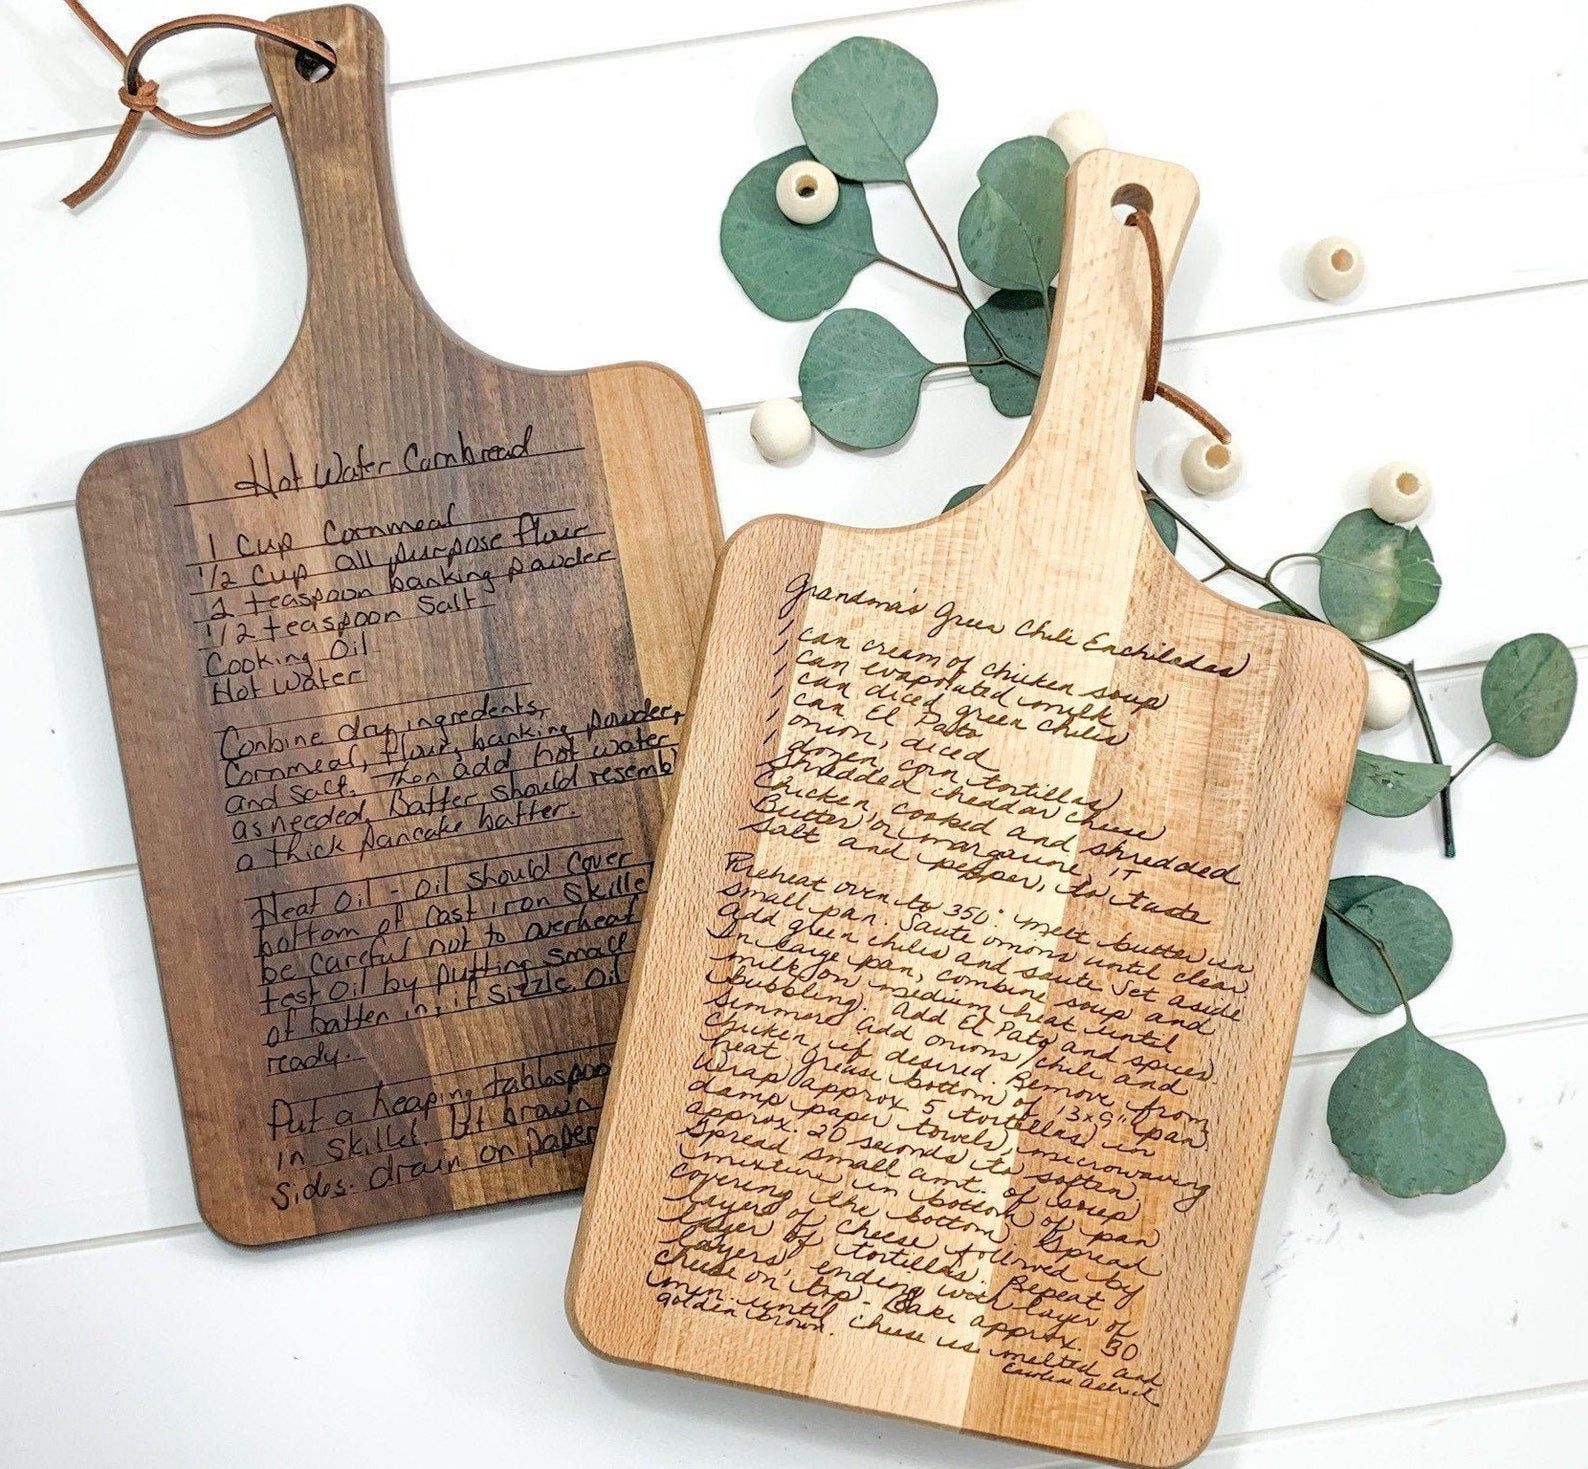 Hot Water Cornbread
1 Cup Cornmeal
1/2 Cup all purpose flour
2 teaspoon banking powder
1/2 teaspoon Salt
Cooking Oil
Hot Water
Conbine dry ingredents,
Cornmeal, flour, banking powder,
and Salt. Then add hot water
as needed. Batter should resemb
a thick pancake batter.
Heat Oil - Oil should cover
bottom of Cast iron Skille
be Careful not to overheat
test Oil by putting small
of batten in; if Sizzle Oil
ready.
Put a heaping tablespoo
in skillet. Let brown
Sides. drain on paper
Grandma's Green Chili Enchiladas
1 can cream of chicken soup
1 can evaporated milk
1 can diced green chilis
1 can El Pato
1 onion, diced
1 dozen corn tortillas
Shredded cheddar cheese
Chicken, cooked and shredded
Butter or margarine, 1T
Salt and pepper, to taste
Preheat oven to 350°. Melt butter in
small pan. Saute onions until clear.
Add green chilis and saute. Set aside
In large pan, combine soup and
milk on medium heat until
bubbling. Add El Pato and spices.
Simmer. Add onions, chili and
chicken, if desired. Remove from
heat. Grease bottom of 13x9" pan.
Wrap approx. 5 tortillas in
damp paper towels, microwaving
approx. 20 seconds to soften.
Spread small amt. of soup
mixture in bottom of pan
covering the bottom. Spread
layers of cheese followed by
layer of tortillas. Repeat
layers, ending with layer of
cheese on top. Bake approx. 30
min. until cheese is melted and
golden brown.
Caroline